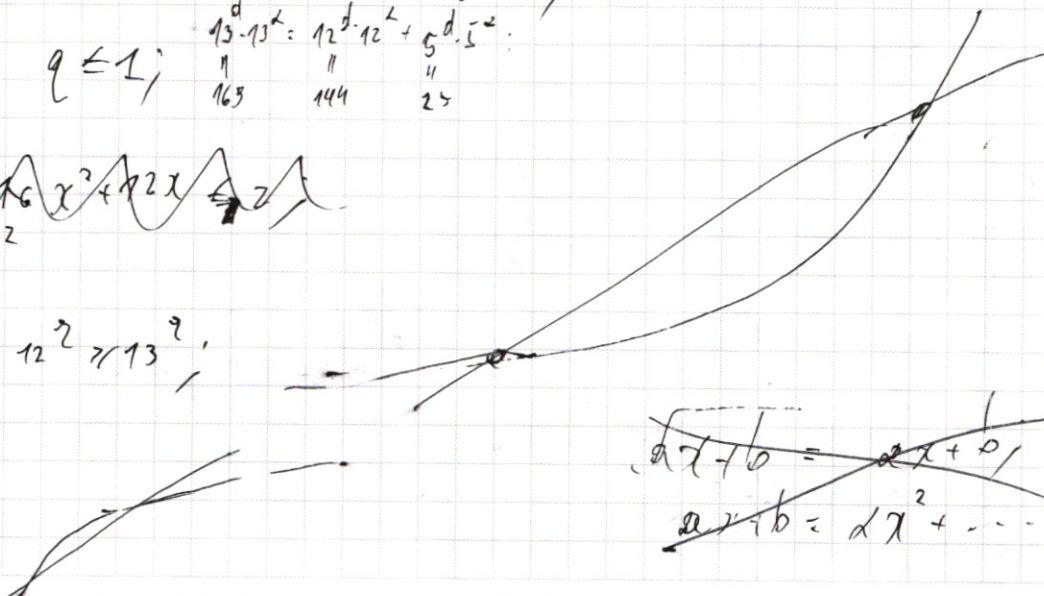 13^d·13^2 = 12^d·12^2 + 5^d·5^2.
q ≤ 1;
" " "
169 144 25
x^2 + 12x ≤ 2
2
12^q ≥ 13^q;
√ax+b = αx+b,
ax+b = αx^2 + ....